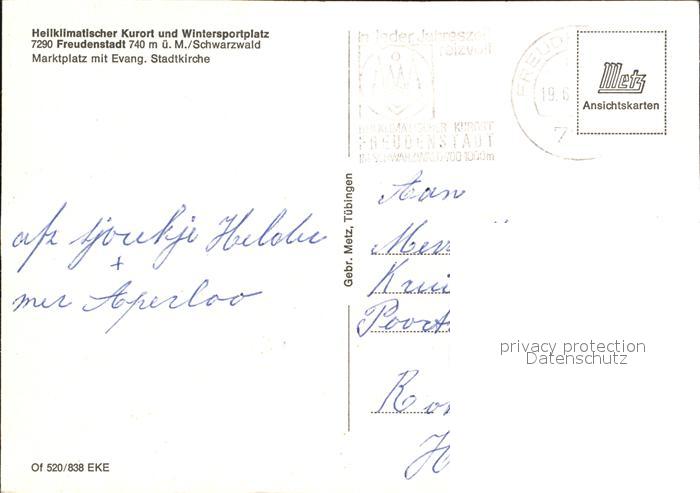 Heilklimatischer Kurort und Wintersportplatz
7290 Freudenstadt 740 m ü. M./Schwarzwald
Marktplatz mit Evang. Stadtkirche
In jeder Jahreszeit
reizvoll
HEILKLIMATISCHER KURORT
FREUDENSTADT
IM SCHWARZWALD 700-1000m
FREUD
19.6
7
Metz
Ansichtskarten
Gebr. Metz, Tübingen
afz Sjoukje Helder
+
mer Aperloo
Aan
Mev
Krui
Poort
privacy protection
Datenschutz
K
H
Of 520/838 EKE